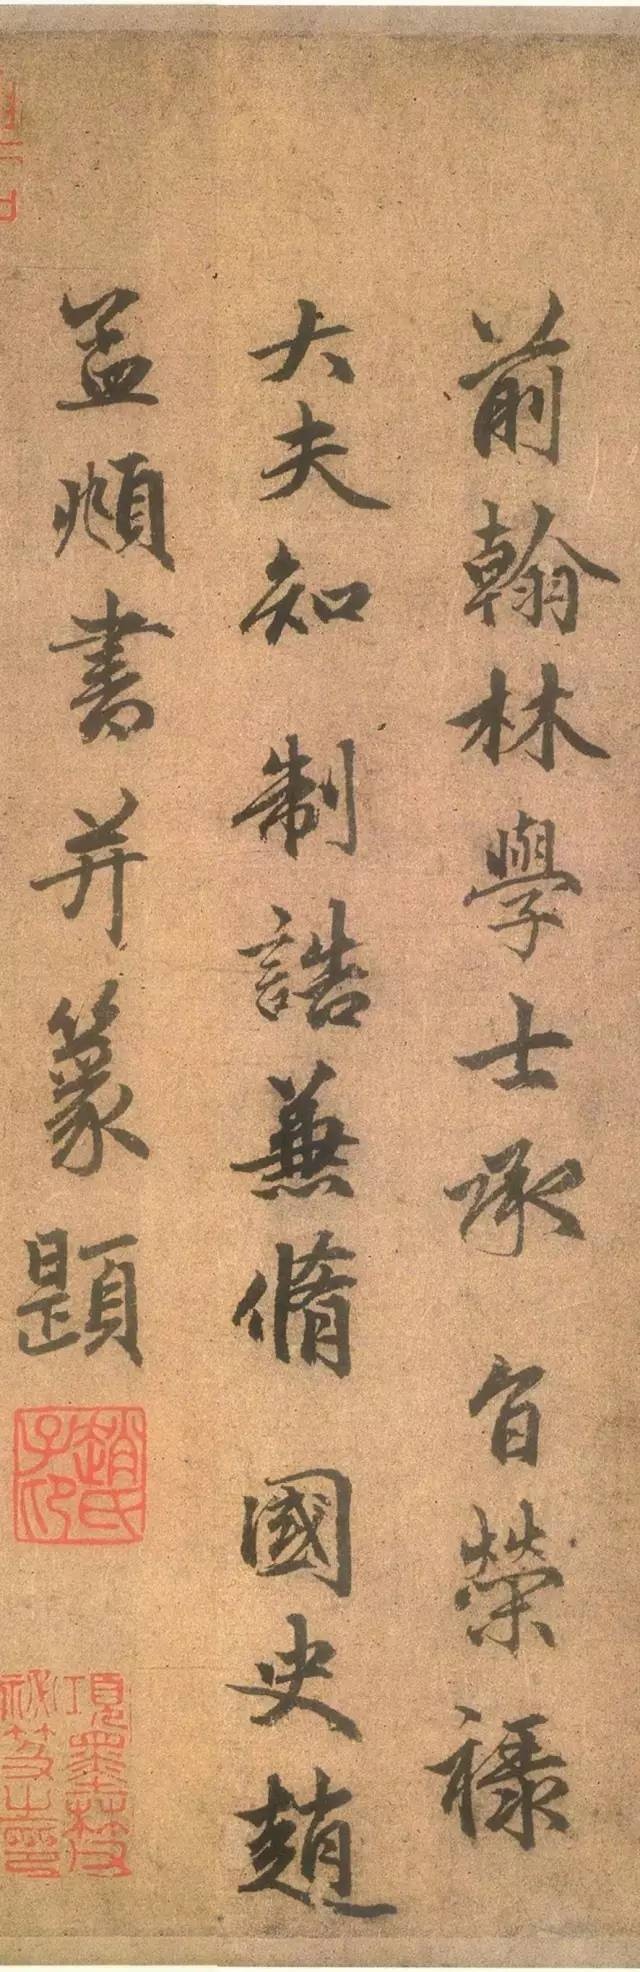 前翰林學士承 旨榮祿
大夫知 制誥兼脩 國史趙
孟頫書并篆題
趙氏子印
項墨林父祕笈之印